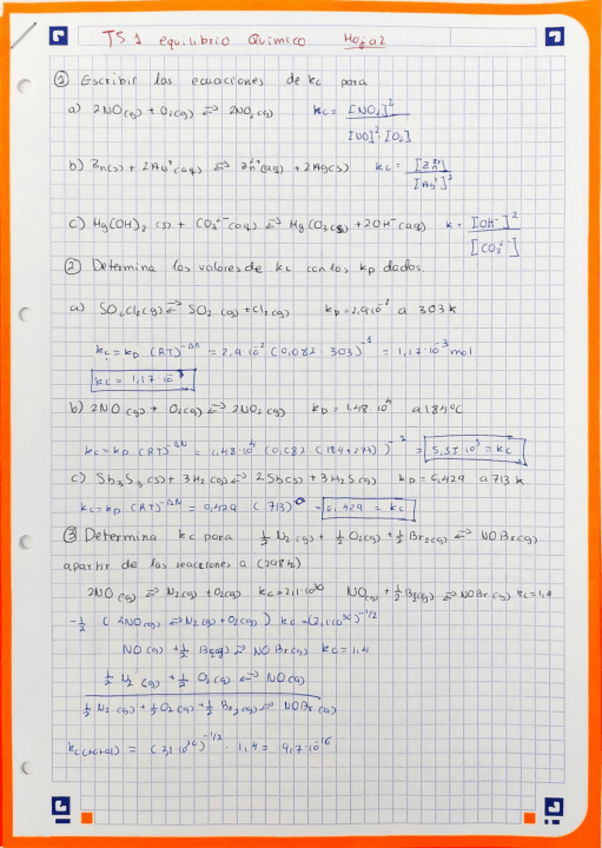 TS.1 equilibrio Químico Hoja2
① Escribir las ecuaciones de kc para
a) 2NO(g) + O₂(g) ⇄ 2NO₂(g) kc = [NO₂]² / [NO]²·[O₂]
b) Zn(s) + 2Ag⁺(aq) ⇄ Zn²⁺(aq) + 2Ag(s) kc = [Zn²⁺] / [Ag⁺]²
c) Mg(OH)₂ (s) + CO₃²⁻(aq) ⇄ Mg CO₃(s) + 2OH⁻(aq) k = [OH⁻]² / [CO₃²⁻]
② Determina los valores de kc con los kp dados.
a) SO₂Cl₂(g) ⇄ SO₂ (g) + Cl₂(g) kp = 2,9·10⁻² a 303 k
kc = kp (RT)^-Δn = 2,9·10⁻² (0,082 · 303)⁻¹ = 1,17·10⁻³ mol
kc = 1,17·10⁻³
b) 2NO (g) + O₂(g) ⇄ 2NO₂(g) kp = 1,48·10⁴ a 184ºC
kc = kp (RT)^-Δn = 1,48·10⁴ (0,082 · (184+273)) = 5,55·10⁵ = kc
c) Sb₂S₃(s) + 3H₂(g) ⇄ 2Sb(s) + 3H₂S(g) kp = 0,429 a 713 k
kc = kp (RT)^-Δn = 0,429 · (713)⁰ = 0,429 = kc
③ Determina kc para ½ N₂(g) + ½ O₂(g) + ½ Br₂(g) ⇄ NOBr(g)
apartir de las reacciones a (298k)
2NO(g) ⇄ N₂(g) + O₂(g) kc = 2,1·10³⁰ NO(g) + ½ Br₂(g) ⇄ NOBr(g) kc = 1,4
-½ ( 2NO(g) ⇄ N₂(g) + O₂(g) ) kc = (2,1·10³⁰)^-1/2
NO(g) + ½ Br₂(g) ⇄ NOBr(g) kc = 1,4
½ N₂(g) + ½ O₂(g) ⇄ NO(g)
½ N₂(g) + ½ O₂(g) + ½ Br₂(g) ⇄ NOBr(g)
kc(total) = (2,1·10³⁰)^-1/2 · 1,4 = 9,7·10⁻¹⁶